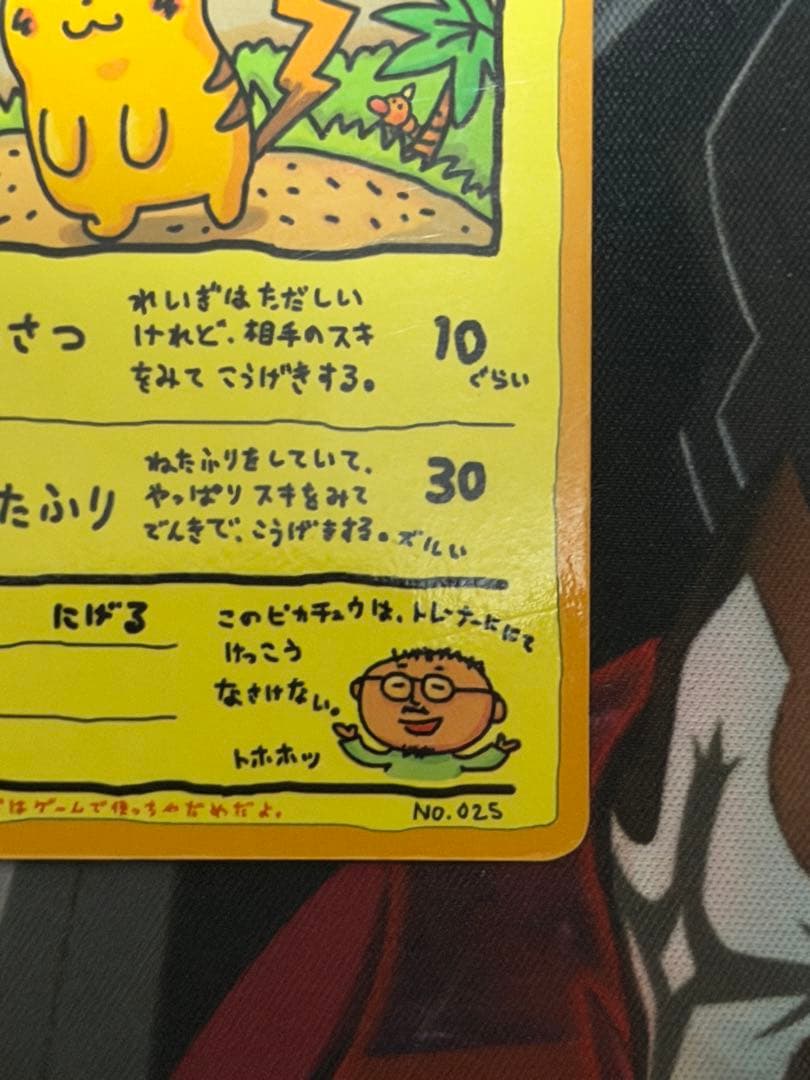 さつ
れいぎはただしい
けれど、相手のスキ
をみて こうげきする。
10
ぐらい
たふり
ねたふりをしていて、
やっぱり スキをみて
でんきで、こうげきする。ズルい
30
にげる
このピカチュウは、トレーナーににて
けっこう
なさけない。
トホホッ
はゲームで使っちゃだめだよ。
NO.025